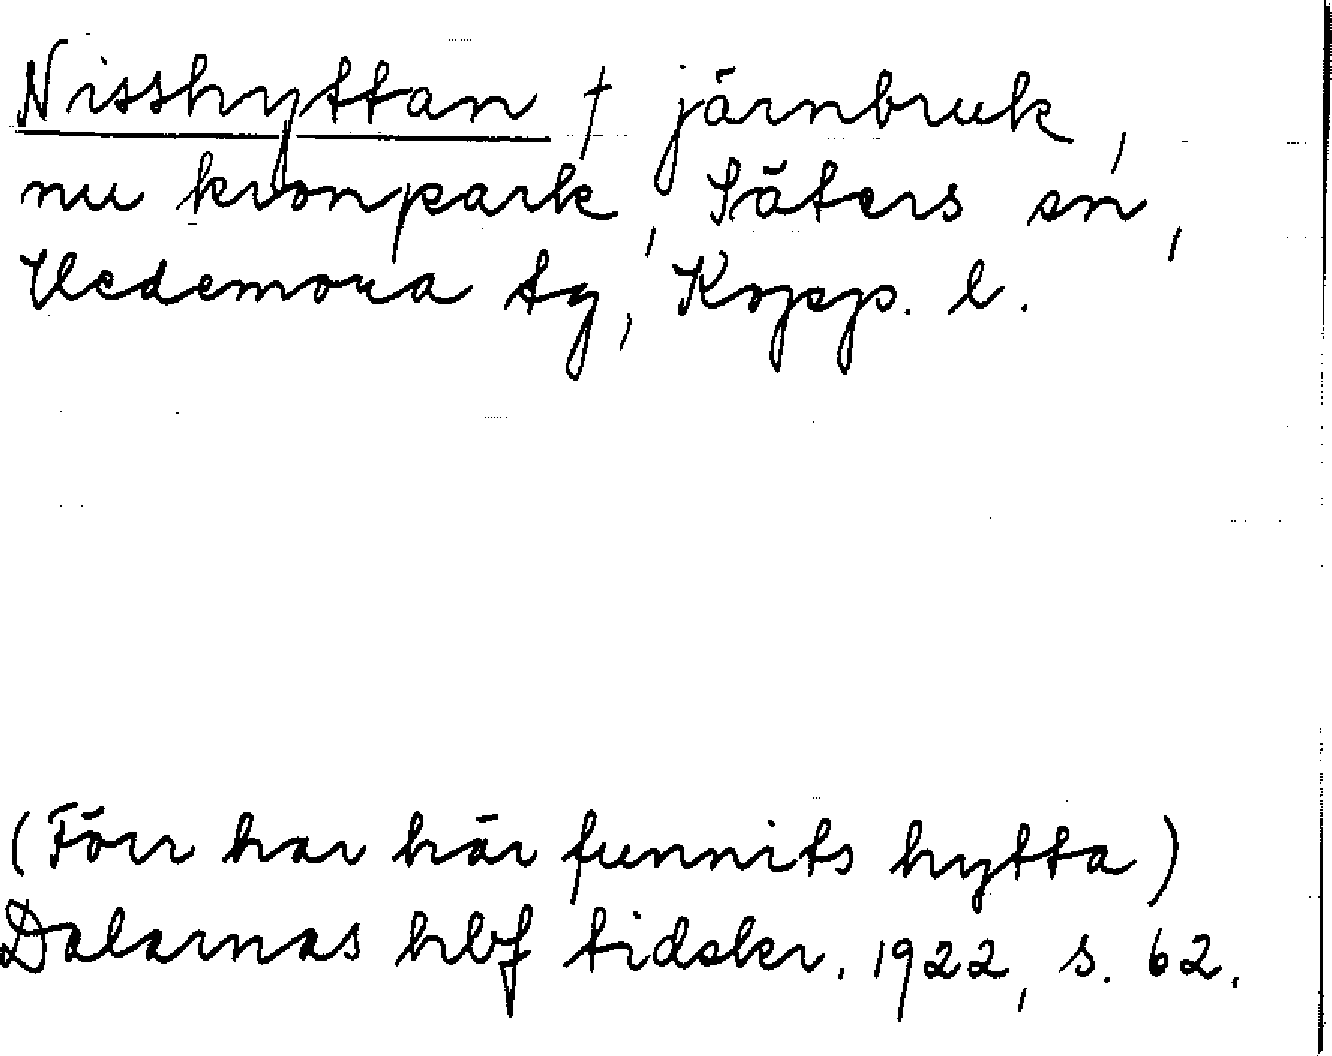 Nisshyttan † järnbruk,
nu kronpark, Säters sn,
Hedemora tg, Kopp. l.
(Förr har här funnits hytta)
Dalarnas hbf tidskr. 1922, s. 62.